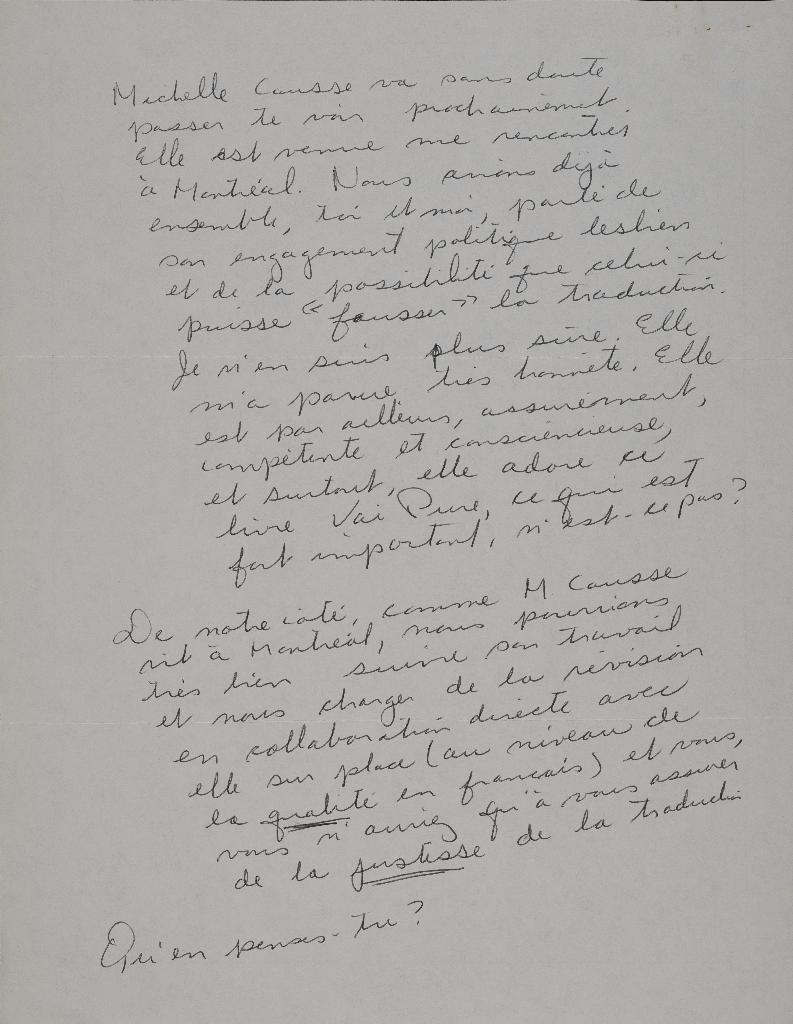 Michelle Causse va sans doute
passer te voir prochainement.
Elle est venue me rencontrer
à Montréal. Nous avions déjà
ensemble, toi et moi, parlé de
son engagement politique lesbien
et de la possibilité que celui-ci
puisse "fausser" la traduction.
Je n'en suis plus sûre. Elle
m'a parue très honnête. Elle
est par ailleurs, assurément,
compétente et consciencieuse,
et surtout, elle adore ce
livre Vai Pure, ce qui est
fort important, n'est-ce pas?
De notre côté, comme M Causse
vit à Montréal, nous pourrions
très bien suivre son travail
et nous charger de la révision
en collaboration directe avec
elle sur place (au niveau de
la qualité en français) et vous,
vous n'auriez qu'à vous assurer
de la justesse de la traduction
Qu'en penses-tu?